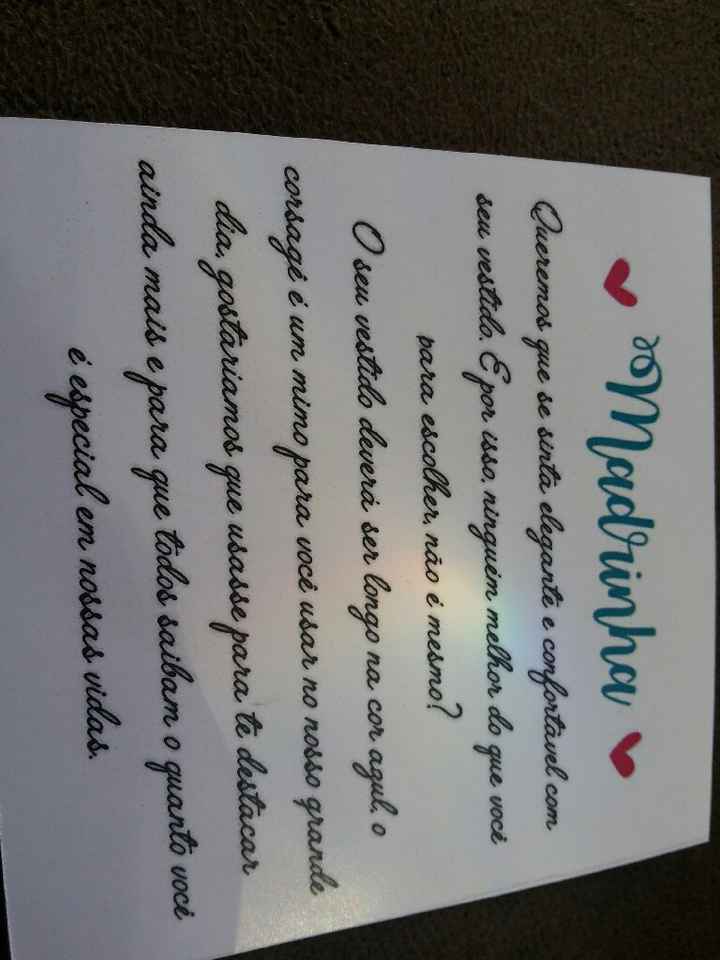 Madrinha
Queremos que se sinta elegante e confortável com
seu vestido. E por isso, ninguém melhor do que você
para escolher, não é mesmo?
O seu vestido deverá ser longo na cor azul, o
corsagê é um mimo para você usar no nosso grande
dia, gostaríamos que usasse para te destacar
ainda mais e para que todos saibam o quanto você
é especial em nossas vidas.